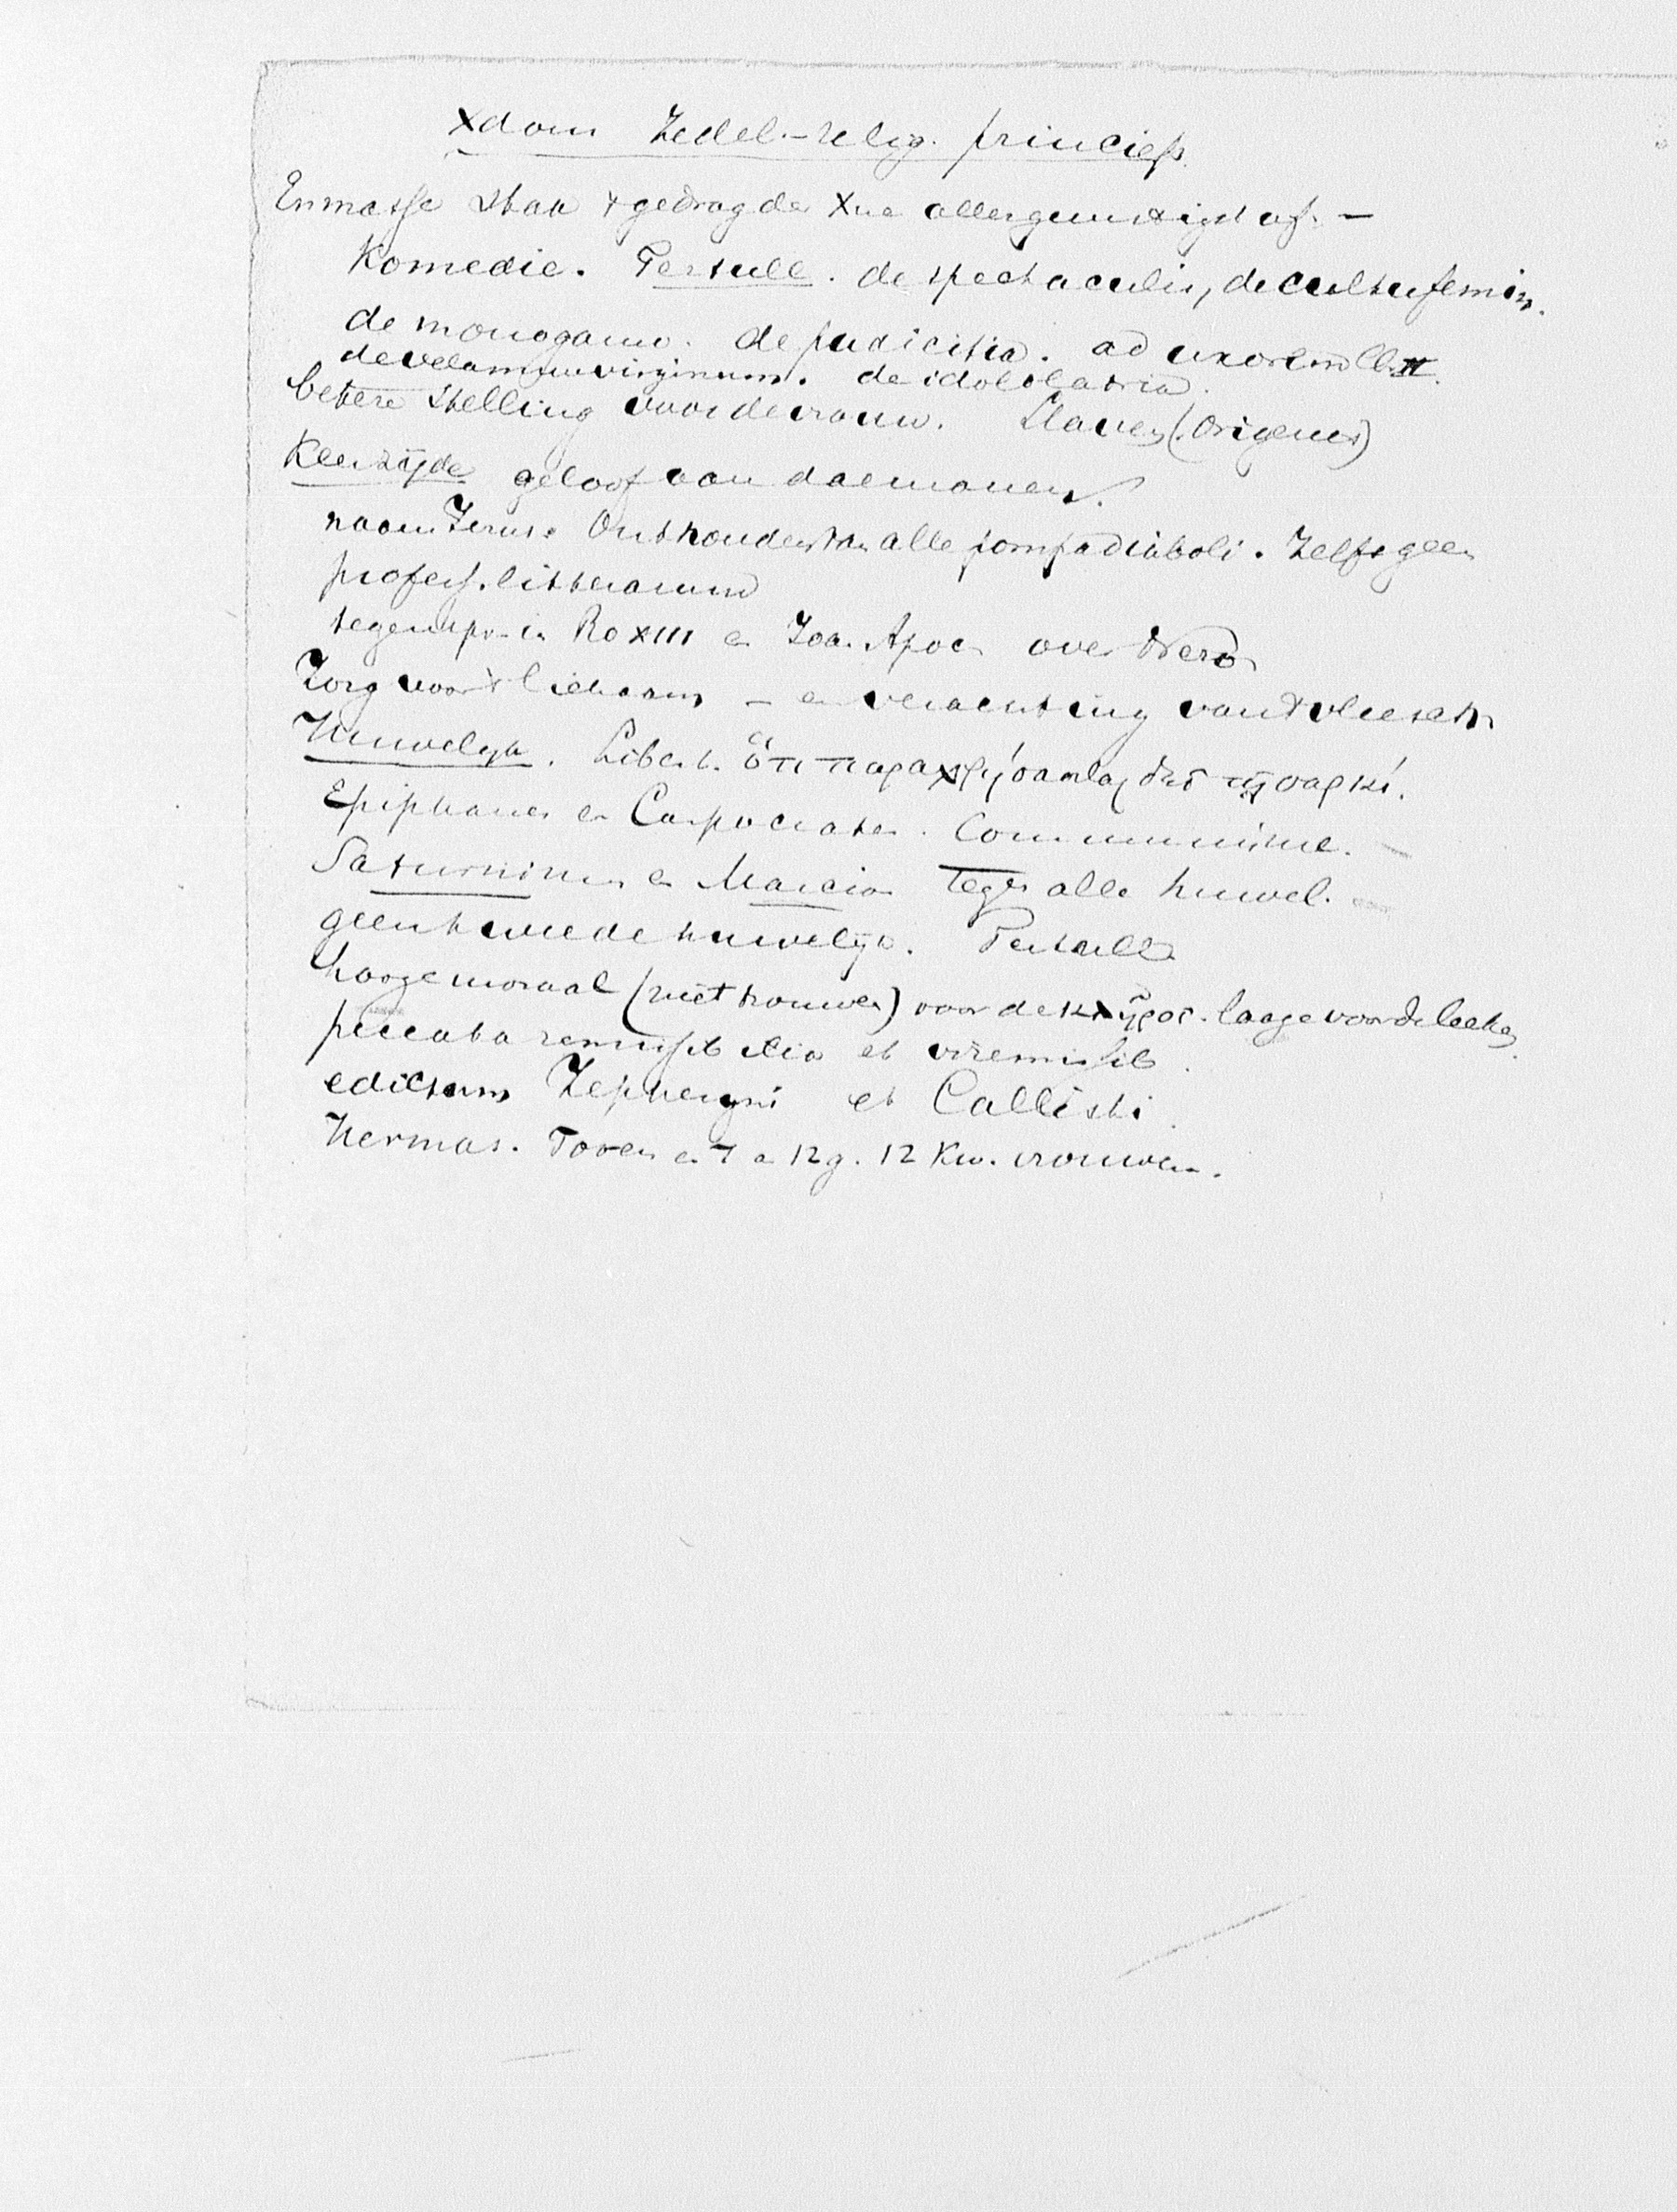 Xdom Zedel.-relig. principes.
En masse staa 't gedrag der Xne allergunstigst af. —
Komedie. Tertull. de spectaculis, de cultu femin.
de monogam. de pudicitia. ad uxorem ll. II.
de velamen virginum. de idololatria.
betere stelling voor de vrouw. Slaven (Origenes)
Keerzijde geloof aan daemonen.
Onthouden van alle pompa diaboli. Zelfs geen
profess. litterarum
tegenspr. in Ro XIII en Joa. Apoc over Nero
Zorg voor 't lichaam — en verachting van 't vleesch
Huwelijk. Libert. ὅτι παραχρῆσασθαι δεῖ τῇ σαρκί.
Epiphanes en Carpocrates. Communisme. —
Saturninus en Marcion tegen alle huwel.
geen tweede huwelijk. Tertull
hooge moraal (niet trouwen) voor de κλῆρος. laage voor de leeken
peccata remissibilia et irremissib.
edictum Zephyrini et Callisti.
Hermas. Toren en 7 a 12 g. 12 Kw. vrouwen.